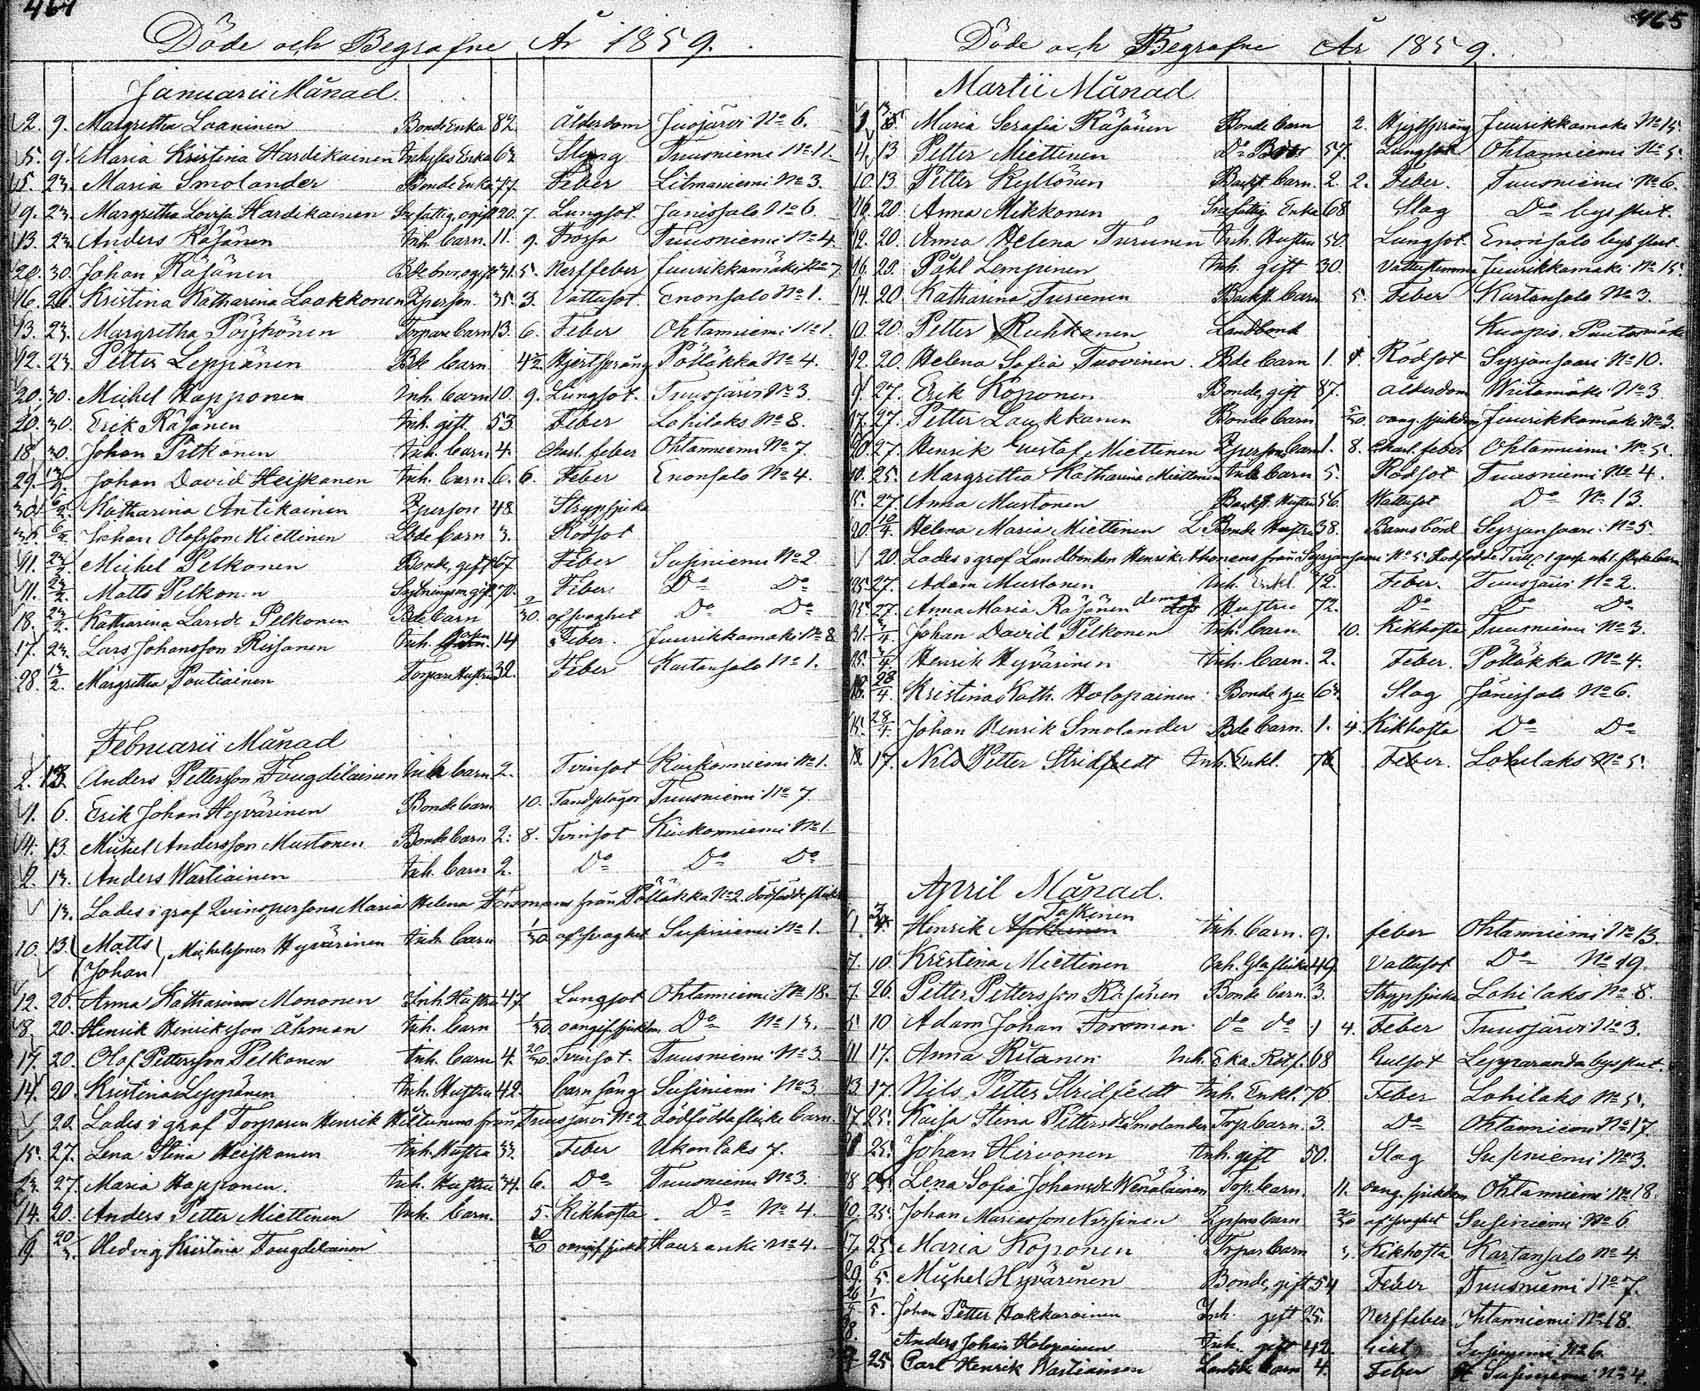 464
Döde och Begrafne År 1859.
Januarii Månad.
2. 9. Margretha Laaninen Bonde Enka 82. Ålderdom Juojärvi No 6.
5. 9. Maria Kristina Hardikainen Inhyses Enka 63. Styng Tuusniemi No 11.
5. 23. Maria Smolander Bonde Enka 77. Feber Litmaniemi No 3.
9. 23. Margretha Lovisa Hardikainen 20. 7. Lungsot Jänissalo No 6
13. 23. Anders Räsänen Inh. barn. 11. 9. Frossa Tuusniemi No 4.
20. 30. Johan Räsänen 31. 5. Nerffeber Juurikkamäki No 7
16. 26. Kristina Katharina Laakkonen Qperson. 35. 3. Vattusot Enonsalo No 1.
13. 23. Margretha Pöyhönen Torpare barn 13. 6. Feber Ohtanniemi No 1.
12. 23. Petter Leppänen Bde barn. 4½ Hjertsprång Pölläkkä No 4.
20. 30. Michel Happonen Inh. barn 10. 9. Lungsot. Tuusjärvi No 3
20. 30. Erik Räsänen Inh. gift. 53. Feber Lohilaks No 8.
18. 30. Johan Pitkänen Inh. barn 4. Charl. feber Ohtanniemi No 7.
29. 13/2 Johan David Heiskanen Inh. barn. 6. 6. Feber Enonsalo No 4.
30. 6/2 Katharina Antikainen Qperson 48. Strypsjuka
6/2 Johan Olofsson Miettinen Bde barn 3. Rödsot
11. 23/2. Michel Pelkonen Bonde, gift 67. Feber Susiniemi No 2
11. 23/2. Matts Pelkonen 70. Feber Do Do
18. 23/2. Katharina Larsdr Pelkonen Bde barn 2/30 af svaghet Do Do
17. 23. Lars Johansson Rissanen Inh. 14. Feber. Juurikkamäki No 8
28. 13/2. Margretha Poutiainen Torpare Hustru 32. Feber Kartansalo No 1.
Februarii Månad
2. 13. Anders Pettersson Fougdilainen Inh barn 2. Tvinsot Kiukonniemi No 1.
1. 6. Erik Johan Hyvärinen Bonde barn 10. Tandplågor Tuusniemi No 7
4. 13. Michel Andersson Mustonen Bonde barn 2. 8. Tvinsot Kiukonniemi No 1
2. 13. Anders Wartiainen Inh. barn 2. Do Do Do
13. Lades i graf Qvinspersons Maria Helena Forsmans från Pölläkkä No 2. dödfödde
10. 13. Matts Johan Michelssöner Hyvärinen Inh. barn 1/30 af svaghet Susiniemi No 1.
12. 20. Anna Katharina Mononen Inh Hustru 47 Lungsot Ohtanniemi No 18.
8. 20. Henrik Henriksson Åhman Inh. barn 1/30. oangif. sjukdm Do No 13.
17. 20. Olof Pettersson Pelkonen Inh. barn 4. 20/30. Tvinsot. Tuusniemi No 3
14. 20. Kristina Leppänen Inh. Hustru 42. barnsäng Susiniemi No 3
20. Lades i graf Torparen Henrik från Tuusjärvi No 2 dödfödda flicke barn.
15. 27. Lena Stina Heiskanen Inh. Hustru 33. Feber Ukonlaks 7.
23. 27. Maria Happonen. Inh. Hustru 34. 6. Do Tuusniemi No 3.
14. 20. Anders Petter Miettinen Inh. barn. 5. Kikhosta Do No 4.
19. 20/3. Hedvig Kristina Fougdilainen 20/30 oangif. sjukd. Hauranki No 4.
465
Döde och Begrafne År 1859.
Martii Månad
Maria Serafia Räsänen Bonde barn 2. Hjertsprång Juurikkamäki No 15
11. 13 Petter Miettinen 57. Lungsot Ohtanniemi No 5.
10. 13. Petter Kyllönen Backst. barn. 2. 2. Feber. Tuusniemi No 6.
16. 20 Anna Mikkonen Enka 68 Slag Do
12. 20. Anna Helena Turunen Inh. Hustru 50. Lungsot. Enonsalo
16. 20. Påhl Lempinen Inh. gift 30. Juurikkamäki No 15.
14. 20 Katharina Turunen Backst. barn 5. Feber Kartansalo No 3.
10. 20. Petter Ruhkanen Landbonde Kuopio.
12. 20. Helena Sofia Tuovinen Bde barn 1. 4. Rödsot Syrjänsaari No 10.
9. 27. Erik Köponen Bonde, gift 87. ålderdom No 3
17. 27. Petter Laukkanen Bonde barn oang. sjukdom Juurikkamäki No 3.
20. 27. Henrik Gustaf Miettinen Qpersons barn 1. 8. Charl. feber Ohtanniemi No 5.
10. 25. Margretha Katharina Miettinen Inh barn 5. Rödsot Tuusniemi No 4.
15. 27. Anna Mustonen Backst. Hustru 56. Vattusot Do No 13.
20. Helena Maria Miettinen L. Bonde Hustru 38. Barnsbörd Syrjänsaari No 5
20. Lades i graf Landbonden Henrik från Syrjänsaari No 5. dödfödde
25. 27. Adam Mustonen Inh. Enkl. 72. Feber. Tuusjärvi No 2.
25. 27. Anna Maria Räsänen Hustru 72. Do Do Do
31. 3/4. Johan David Pelkonen Inh. barn 10. Kikhosta Tuusniemi No 3.
25. 3/4. Henrik Hyvärinen Inh. barn. 2. Feber. Pölläkkä No 4.
28/4. Kristina Kath. Holopainen Bonde 63. Slag Jänissalo No 6.
15. 28/4. Johan Henrik Smolander Bde barn. 1. 4. Kikhosta Do Do
13. 17. Nils Petter Stridfeldt Inh. Enkl. 76 Feber. Lohilaks No 5.
April Månad.
1. 3/4. Henrik Inh. barn. 9. feber Ohtanniemi No 13.
7. 10. Kristina Miettinen 49. Vattusot Do No 19.
7. 26. Petter Pettersson Räsänen Bonde barn. 3. Strypsjuka Lohilaks No 8.
5 10 Adam Johan Forsman Do do 1 4. Feber Tuusjärvi No 3.
11 17. Anna Ritanen Inh. Enka 68 Gulsot Lepparanda
13. 17. Nils Petter Stridfeldt Inh. Enkl. 76 Feber Lohilaks No 5.
17. 25. Kaisa Stina Pettersdr Smolander Torp barn. 3. Do Ohtanniemi No 17.
21 25. Johan Hirvonen Inh. gift 50. Slag Susiniemi No 3.
18 25. Lena Sofia Johansdr Wänäläinen Torp. barn. 11. oang. sjukdom Ohtanniemi No 18.
19. 25. Johan Mariasson Nissinen Qpsons barn af svaghet Susiniemi No 6
17. 25. Maria Köponen Torpar barn 3. Kikhosta Kartansalo No 4.
29. Michel Hyvärinen Bonde, gift 54 Feber Tuusniemi No 7.
26. 1/5. Johan Petter Hakkarainen Inh. gift 25. Nerffeber Ohtanniemi No 18.
Anders Johan Holopainen Inh. gift 42. Susiniemi No 6.
25. Carl Henrik Wartiainen barn 4. Feber Susiniemi No 4.